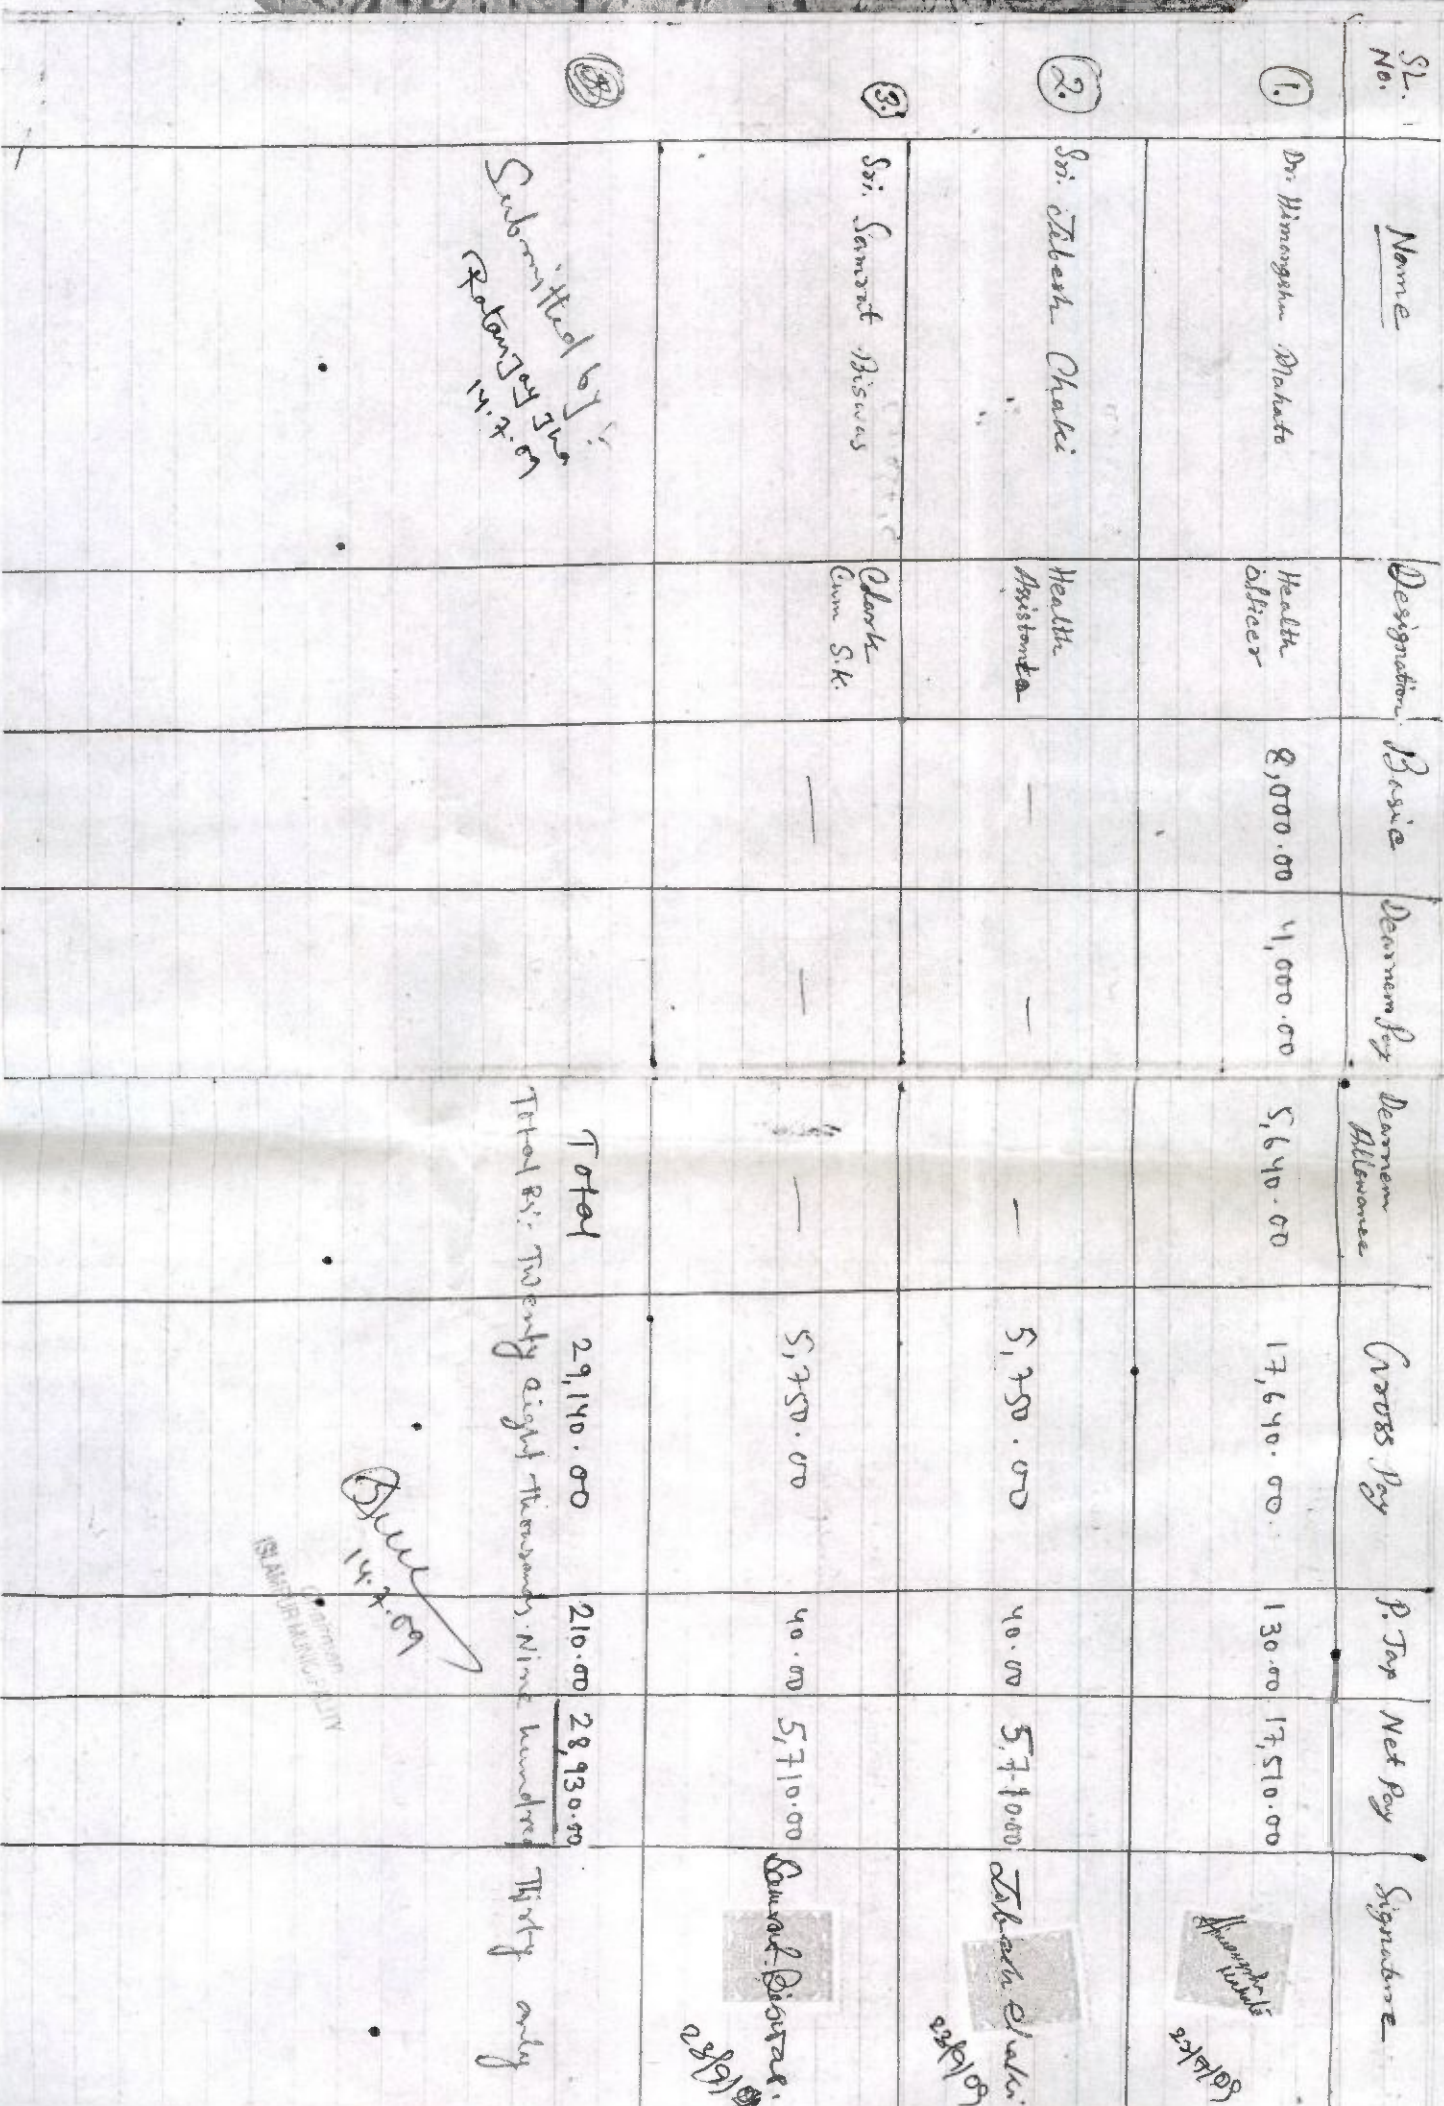 SL. No. Name Designation Basic Dearnem Pay Dearnem Allowance Gross Pay P. Tax Net Pay Signature
1. Dr. Himangshu Mahato Health Officer 8,000.00 4,000.00 5,640.00 17,640.00. 130.00 17,510.00 Himangshu Mahato
2. Sri. Jibesh Chaki Health Assistant — — — 5,750.00 40.00 5,710.00 Jibesh Chaki 23/9/09
3. Sri. Samrat Biswas Clark Cum S.K. — — — 5,750.00 40.00 5,710.00 Samrat Biswas. 23/9/09
Total 29,140.00 210.00 28,930.00
Total Rs:- Twenty eight thousands Nine hundred Thirty only
Submitted by :-
Ratanjay Jha
14.7.09
14.7.09
Chairman
ISLAMPUR MUNICIPALITY